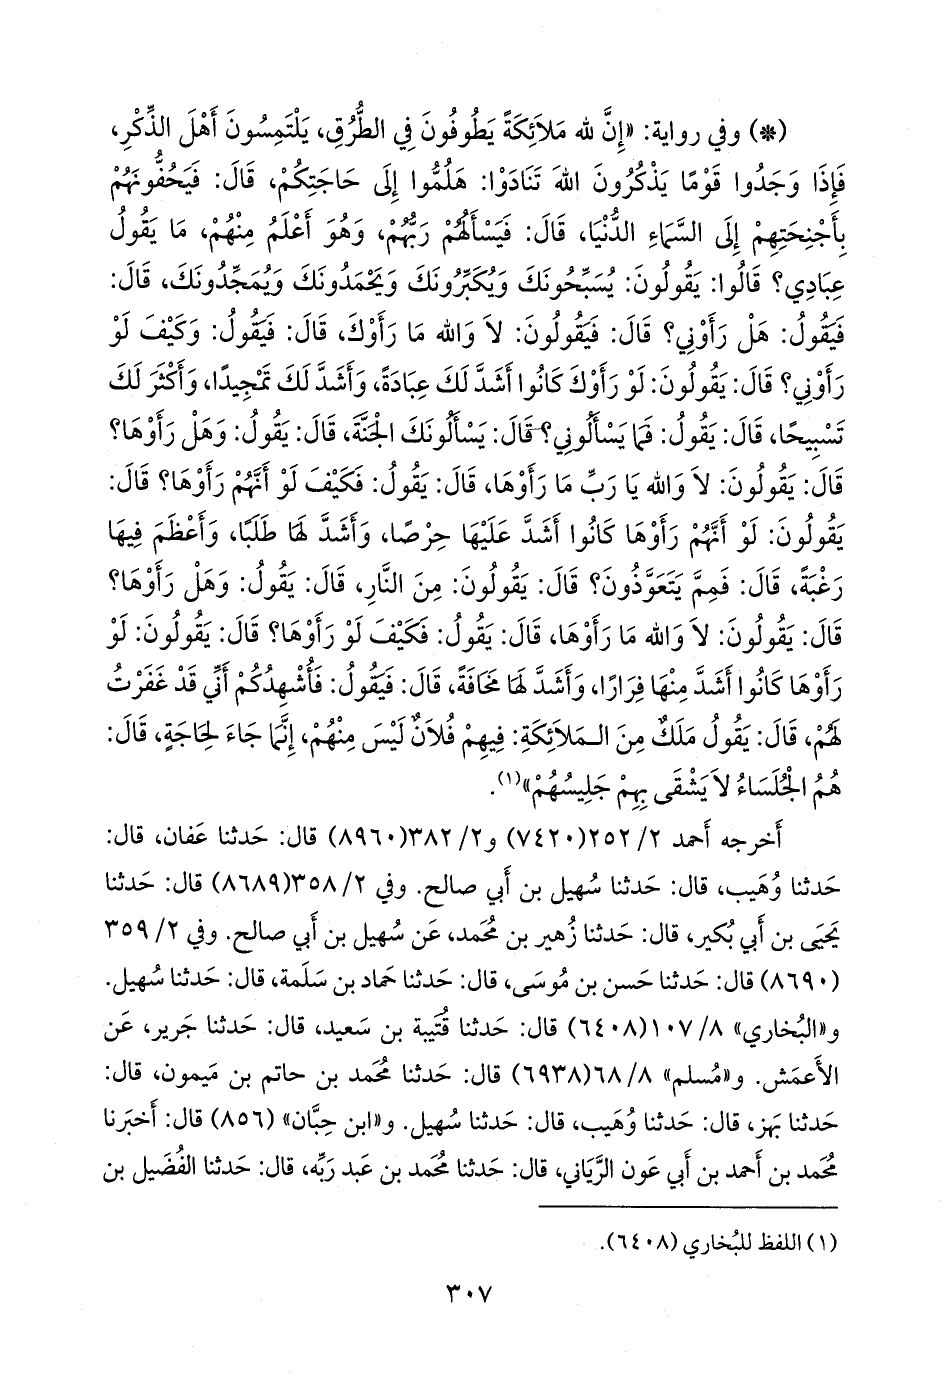 (*) وفي رواية: «إِنَّ لله مَلاَئِكَةً يَطُوفُونَ فِي الطُّرُقِ، يَلْتَمِسُونَ أَهْلَ الذِّكْرِ،
فَإِذَا وَجَدُوا قَوْمًا يَذْكُرُونَ اللهَ تَنَادَوْا: هَلُمُّوا إِلَى حَاجَتِكُمْ، قَالَ: فَيَحُفُّونَهُمْ
بِأَجْنِحَتِهِمْ إِلَى السَّمَاءِ الدُّنْيَا، قَالَ: فَيَسْأَلُهُمْ رَبُّهُمْ، وَهُوَ أَعْلَمُ مِنْهُمْ، مَا يَقُولُ
عِبَادِي؟ قَالُوا: يَقُولُونَ: يُسَبِّحُونَكَ وَيُكَبِّرُونَكَ وَيَحْمَدُونَكَ وَيُمَجِّدُونَكَ، قَالَ:
فَيَقُولُ: هَلْ رَأَوْنِي؟ قَالَ: فَيَقُولُونَ: لاَ وَالله مَا رَأَوْكَ، قَالَ: فَيَقُولُ: وَكَيْفَ لَوْ
رَأَوْنِي؟ قَالَ: يَقُولُونَ: لَوْ رَأَوْكَ كَانُوا أَشَدَّ لَكَ عِبَادَةً، وَأَشَدَّ لَكَ تَمْجِيدًا، وَأَكْثَرَ لَكَ
تَسْبِيحًا، قَالَ: يَقُولُ: فَمَا يَسْأَلُونِي؟ قَالَ: يَسْأَلُونَكَ الجَنَّةَ، قَالَ: يَقُولُ: وَهَلْ رَأَوْهَا؟
قَالَ: يَقُولُونَ: لاَ وَالله يَا رَبِّ مَا رَأَوْهَا، قَالَ: يَقُولُ: فَكَيْفَ لَوْ أَنَّهُمْ رَأَوْهَا؟ قَالَ:
يَقُولُونَ: لَوْ أَنَّهُمْ رَأَوْهَا كَانُوا أَشَدَّ عَلَيْهَا حِرْصًا، وَأَشَدَّ لَهَا طَلَبًا، وَأَعْظَمَ فِيهَا
رَغْبَةً، قَالَ: فَمِمَّ يَتَعَوَّذُونَ؟ قَالَ: يَقُولُونَ: مِنَ النَّارِ، قَالَ: يَقُولُ: وَهَلْ رَأَوْهَا؟
قَالَ: يَقُولُونَ: لاَ وَالله مَا رَأَوْهَا، قَالَ: يَقُولُ: فَكَيْفَ لَوْ رَأَوْهَا؟ قَالَ: يَقُولُونَ: لَوْ
رَأَوْهَا كَانُوا أَشَدَّ مِنْهَا فِرَارًا، وَأَشَدَّ لَهَا مَخَافَةً، قَالَ: فَيَقُولُ: فَأُشْهِدُكُمْ أَنِّي قَدْ غَفَرْتُ
لَهُمْ، قَالَ: يَقُولُ مَلَكٌ مِنَ الـمَلاَئِكَةِ: فِيهِمْ فُلاَنٌ لَيْسَ مِنْهُمْ، إِنَّمَا جَاءَ لِحَاجَةٍ، قَالَ:
هُمُ الْجُلَسَاءُ لاَ يَشْقَى بِهِمْ جَلِيسُهُمْ»(١).
أَخرجه أَحمد ٢/ ٢٥٢(٧٤٢٠) و٢/ ٣٨٢(٨٩٦٠) قال: حَدثنا عَفان، قال:
حَدثنا وُهَيب، قال: حَدثنا سُهيل بن أَبي صالح. وفي ٢/ ٣٥٨(٨٦٨٩) قال: حَدثنا
يَحيَى بن أَبي بُكير، قال: حَدثنا زُهير بن مُحمد، عَن سُهيل بن أَبي صالح. وفي ٢/ ٣٥٩
(٨٦٩٠) قال: حَدثنا حَسن بن مُوسَى، قال: حَدثنا حَماد بن سَلَمة، قال: حَدثنا سُهيل.
و«البُخاري» ٨/ ١٠٧(٦٤٠٨) قال: حَدثنا قُتَيبة بن سَعيد، قال: حَدثنا جَرير، عَن
الأَعمَش. و«مُسلم» ٨/ ٦٨(٦٩٣٨) قال: حَدثنا مُحمد بن حاتم بن مَيمون، قال:
حَدثنا بَهز، قال: حَدثنا وُهَيب، قال: حَدثنا سُهيل. و«ابن حِبَّان» (٨٥٦) قال: أَخبَرنا
مُحمد بن أَحمد بن أَبي عَون الرَّيَاني، قال: حَدثنا مُحمد بن عَبد رَبِّه، قال: حَدثنا الفُضَيل بن
(١) اللفظ للبُخاري (٦٤٠٨).
٣٠٧